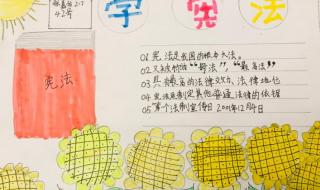 学 宪 法
宪法
01 宪法是我国的根本大法。
02 又被称作“母法”，“最高法”
03 具有最高的法律效力、法律地位
04 宪法是制定其他普通法律的依据
05 第一个法制宣传日 2001年12月4日